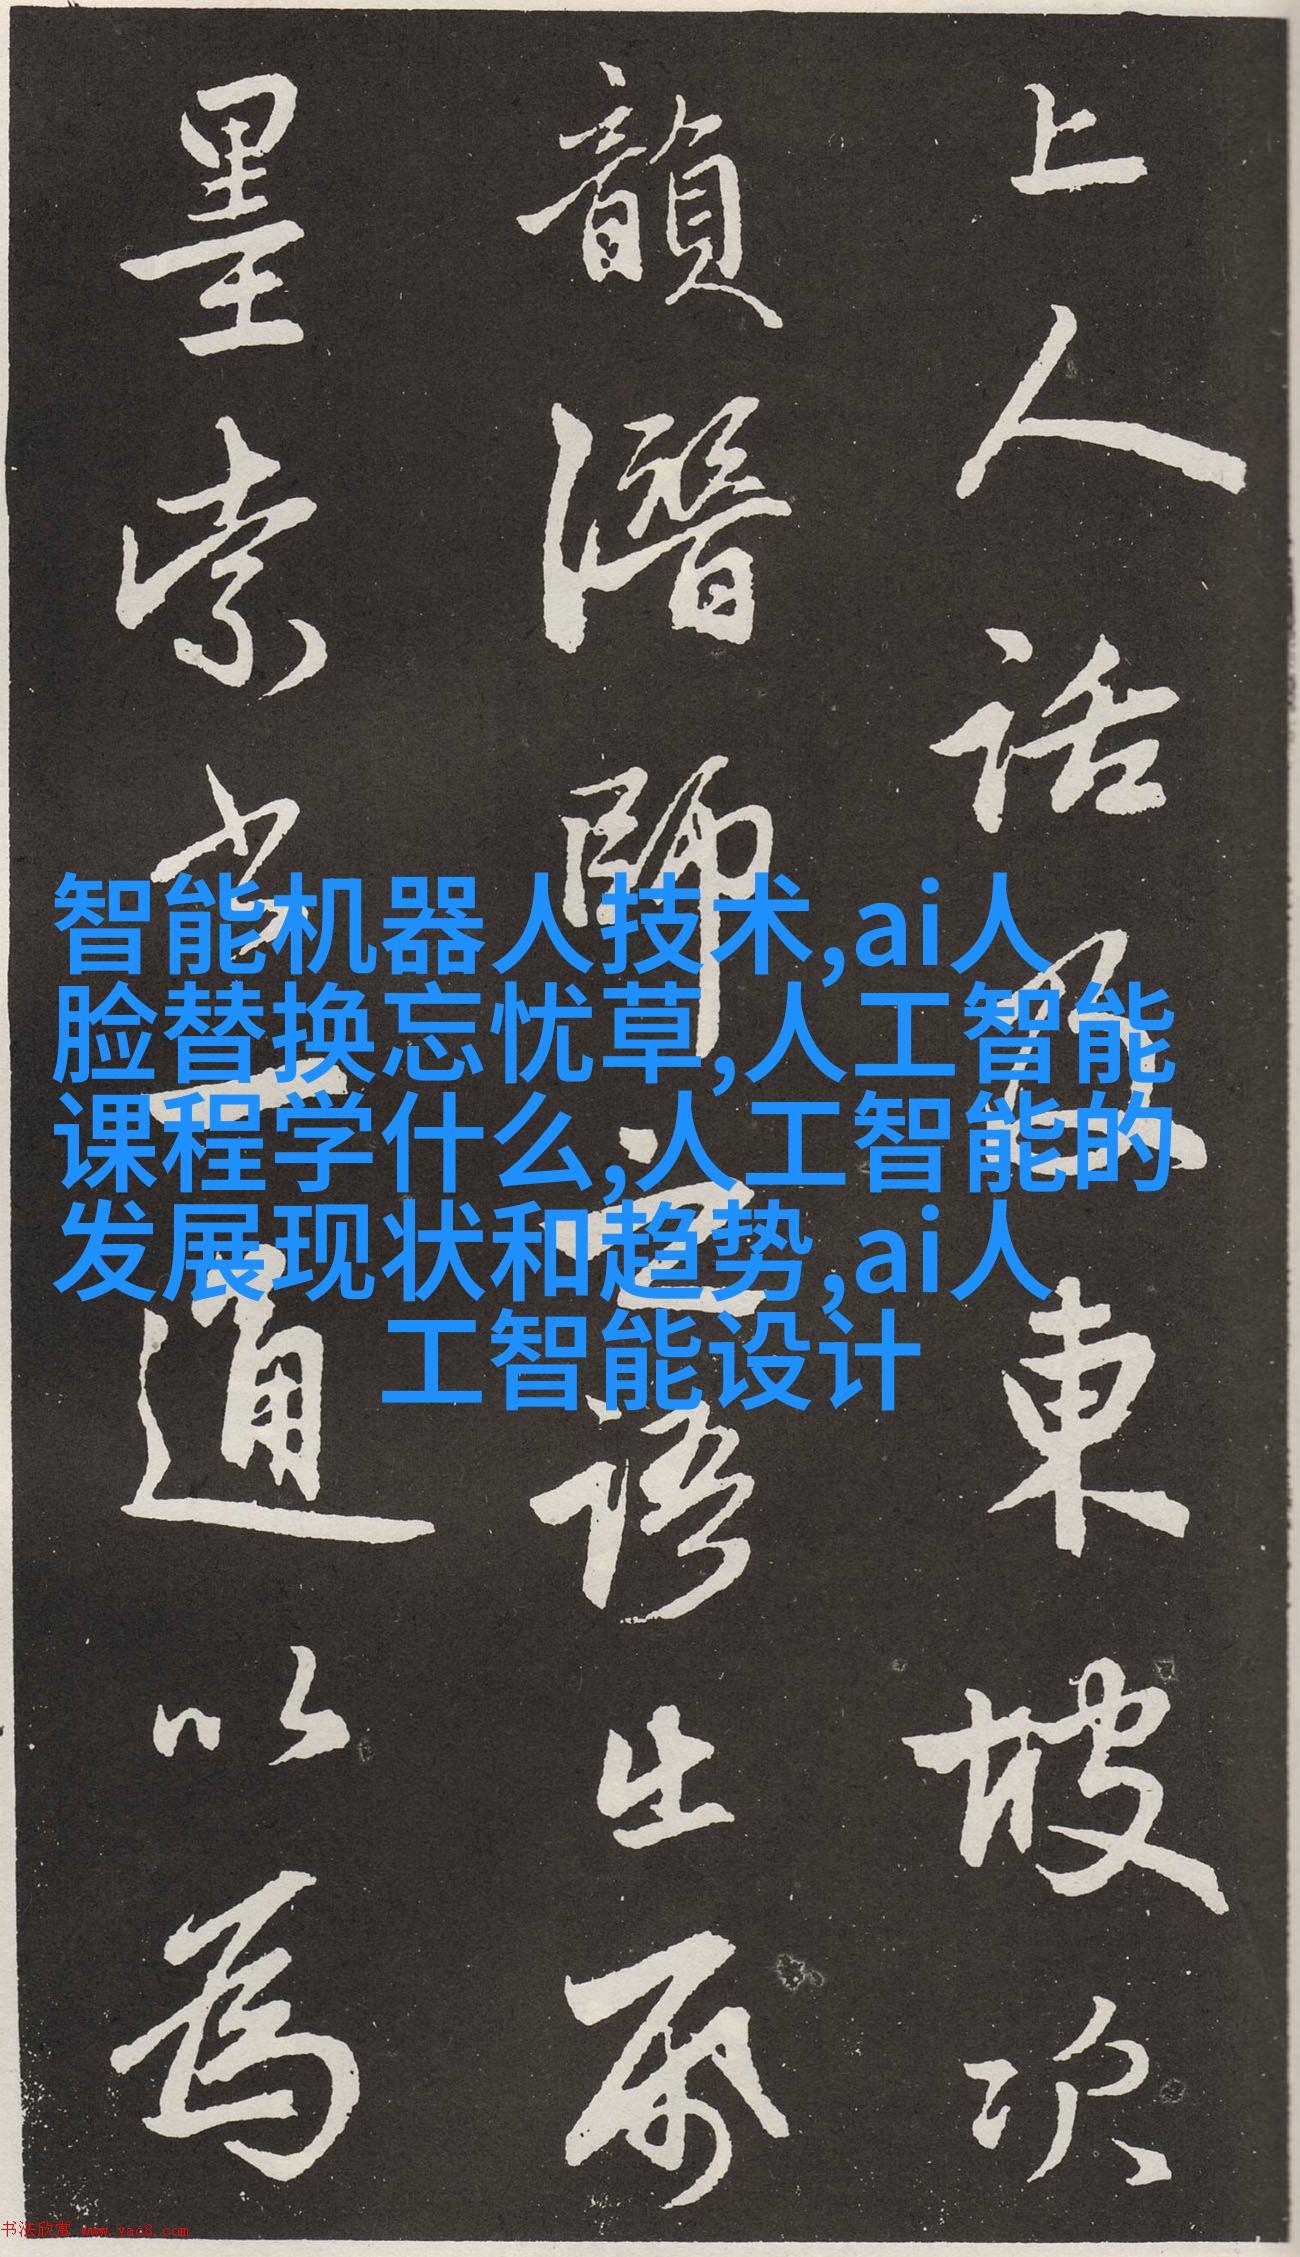 上人話及東坡次
韻潛師之語生前
墨索書一通以為
智能机器人技术,ai人
脸替换忘忧草,人工智能
课程学什么,人工智能的
发展现状和趋势,ai人
工智能设计
书法欣赏 www.yac8.com